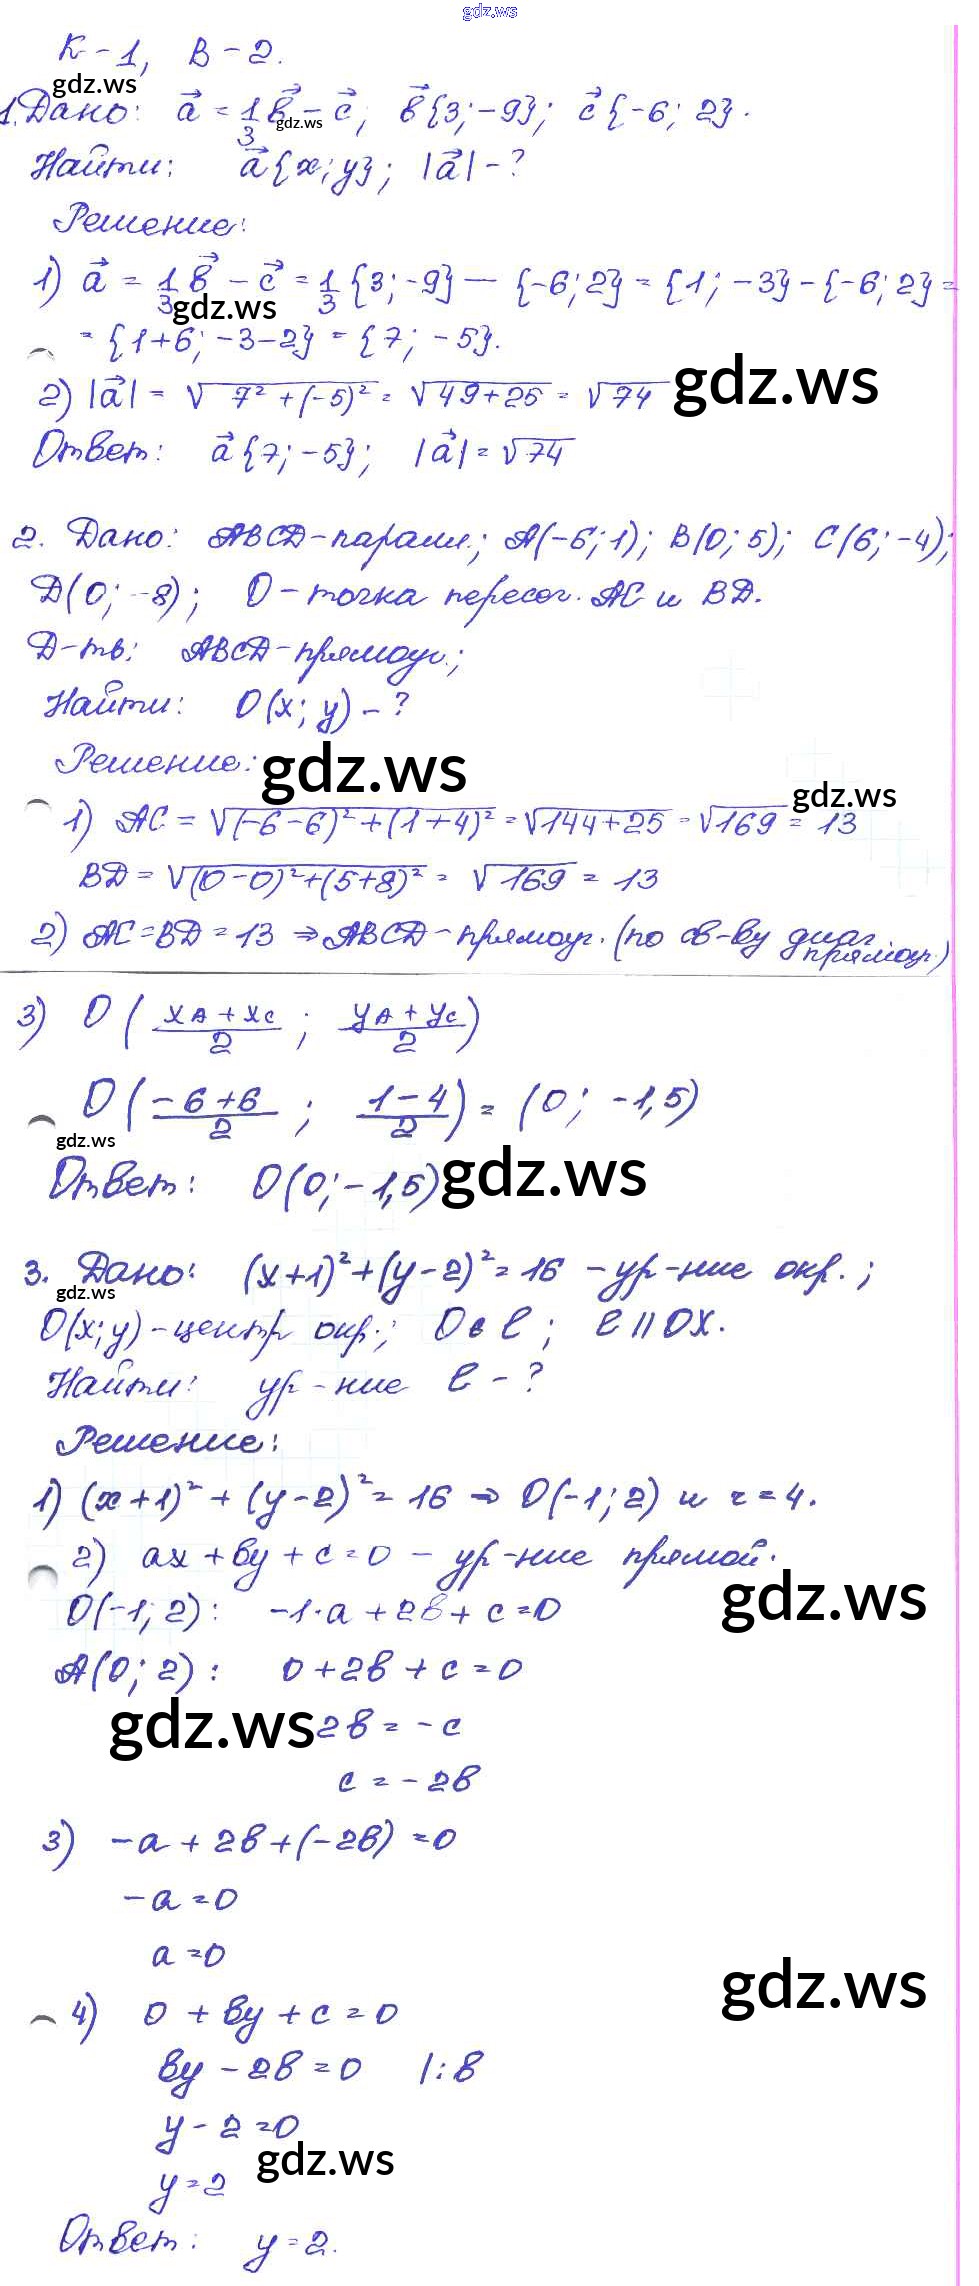 gdz.ws
К-1, В-2.
gdz.ws
1. Дано: a⃗ = 1/3 b⃗ - c⃗, b⃗{3; -9}; c⃗{-6; 2}.
gdz.ws
Найти: a⃗{x; y}; |a⃗| - ?
Решение:
1) a⃗ = 1/3 b⃗ - c⃗ = 1/3 {3; -9} - {-6; 2} = {1; -3} - {-6; 2} =
gdz.ws
= {1+6; -3-2} = {7; -5}.
2) |a⃗| = √(7² + (-5)²) = √(49+25) = √74
gdz.ws
Ответ: a⃗{7; -5}; |a⃗| = √74
2. Дано: ABCD-парал.; A(-6; 1); B(0; 5); C(6; -4);
D(0; -8); O - точка пересеч. AC и BD.
Д-ть: ABCD-прямоуг.;
Найти: O(x; y) - ?
Решение:
gdz.ws
gdz.ws
1) AC = √((-6-6)² + (1+4)²) = √(144+25) = √169 = 13
BD = √((0-0)² + (5+8)²) = √169 = 13
2) AC = BD = 13 ⇒ ABCD - прямоуг. (по св-ву диаг.
прямоуг.)
3) O((xA + xC)/2; (yA + yC)/2)
O((-6+6)/2; (1-4)/2) = (0; -1,5)
gdz.ws
Ответ: O(0; -1,5)
gdz.ws
3. Дано: (x+1)² + (y-2)² = 16 - ур-ние окр.;
gdz.ws
O(x; y) - центр окр.; O∈ℓ; ℓ || OX.
Найти: ур-ние ℓ - ?
Решение:
1) (x+1)² + (y-2)² = 16 ⇒ O(-1; 2) и r = 4.
2) ax + by + c = 0 - ур-ние прямой.
gdz.ws
O(-1; 2): -1·a + 2b + c = 0
A(0; 2): 0 + 2b + c = 0
gdz.ws
2b = -c
c = -2b
3) -a + 2b + (-2b) = 0
-a = 0
a = 0
gdz.ws
4) 0 + by + c = 0
by - 2b = 0 |: b
y - 2 = 0
gdz.ws
y = 2
Ответ: y = 2.